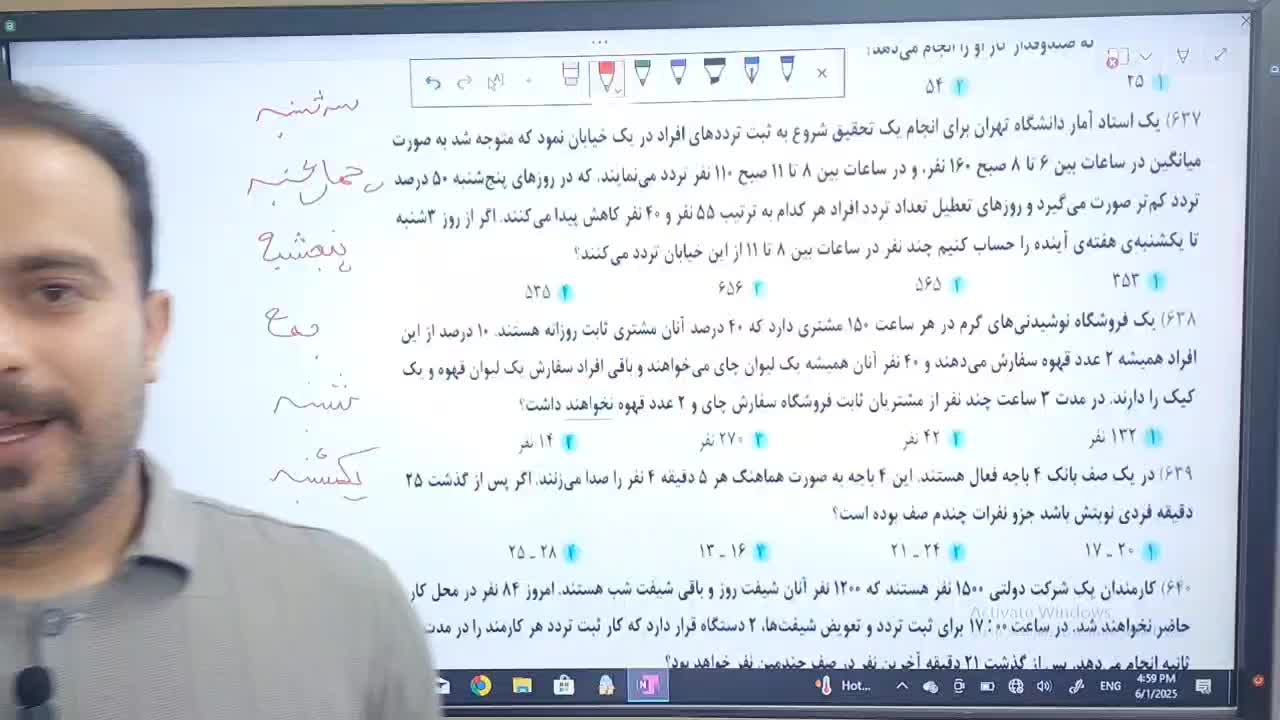 به صندوقدار کار او را انجام می‌دهد؟
۱ ۲۵ ۲ ۵۴
۶۳۷) یک استاد آمار دانشگاه تهران برای انجام یک تحقیق شروع به ثبت ترددهای افراد در یک خیابان نمود که متوجه شد به صورت
میانگین در ساعات بین ۶ تا ۸ صبح ۱۶۰ نفر، و در ساعات بین ۸ تا ۱۱ صبح ۱۱۰ نفر تردد می‌نمایند. که در روزهای پنج‌شنبه ۵۰ درصد
تردد کم‌تر صورت می‌گیرد و روزهای تعطیل تعداد تردد افراد هر کدام به ترتیب ۵۵ نفر و ۴۰ نفر کاهش پیدا می‌کنند. اگر از روز ۳شنبه
تا یکشنبه‌ی هفته‌ی آینده را حساب کنیم چند نفر در ساعات بین ۸ تا ۱۱ از این خیابان تردد می‌کنند؟
۱ ۳۵۳ ۲ ۵۶۵ ۳ ۶۵۶ ۴ ۵۳۵
۶۳۸) یک فروشگاه نوشیدنی‌های گرم در هر ساعت ۱۵۰ مشتری دارد که ۴۰ درصد آنان مشتری ثابت روزانه هستند. ۱۰ درصد از این
افراد همیشه ۲ عدد قهوه سفارش می‌دهند و ۴۰ نفر آنان همیشه یک لیوان چای می‌خواهند و باقی افراد سفارش یک لیوان قهوه و یک
کیک را دارند. در مدت ۳ ساعت چند نفر از مشتریان ثابت فروشگاه سفارش چای و ۲ عدد قهوه نخواهند داشت؟
۱ ۱۳۲ نفر ۲ ۴۲ نفر ۳ ۲۷۰ نفر ۴ ۱۴ نفر
۶۳۹) در یک صف بانک ۴ باجه فعال هستند. این ۴ باجه به صورت هماهنگ هر ۵ دقیقه ۴ نفر را صدا می‌زنند. اگر پس از گذشت ۲۵
دقیقه فردی نوبتش باشد جزو نفرات چندم صف بوده است؟
۱ ۲۰ ـ ۱۷ ۲ ۲۴ ـ ۲۱ ۳ ۱۶ ـ ۱۳ ۴ ۲۸ ـ ۲۵
۶۴۰) کارمندان یک شرکت دولتی ۱۵۰۰ نفر هستند که ۱۲۰۰ نفر آنان شیفت روز و باقی شیفت شب هستند. امروز ۸۴ نفر در محل کار
حاضر نخواهند شد. در ساعت ۱۷:۰۰ برای ثبت تردد و تعویض شیفت‌ها، ۲ دستگاه قرار دارد که کار ثبت تردد هر کارمند را در مدت
ثانیه انجام می‌دهد. پس از گذشت ۲۱ دقیقه آخرین نفر در صف چندمین نفر خواهد بود؟
سه شنبه
چهارشنبه
پنجشنبه
جمعه
شنبه
یکشنبه
Activate Windows
Hot... ENG 4:59 PM
6/1/2025